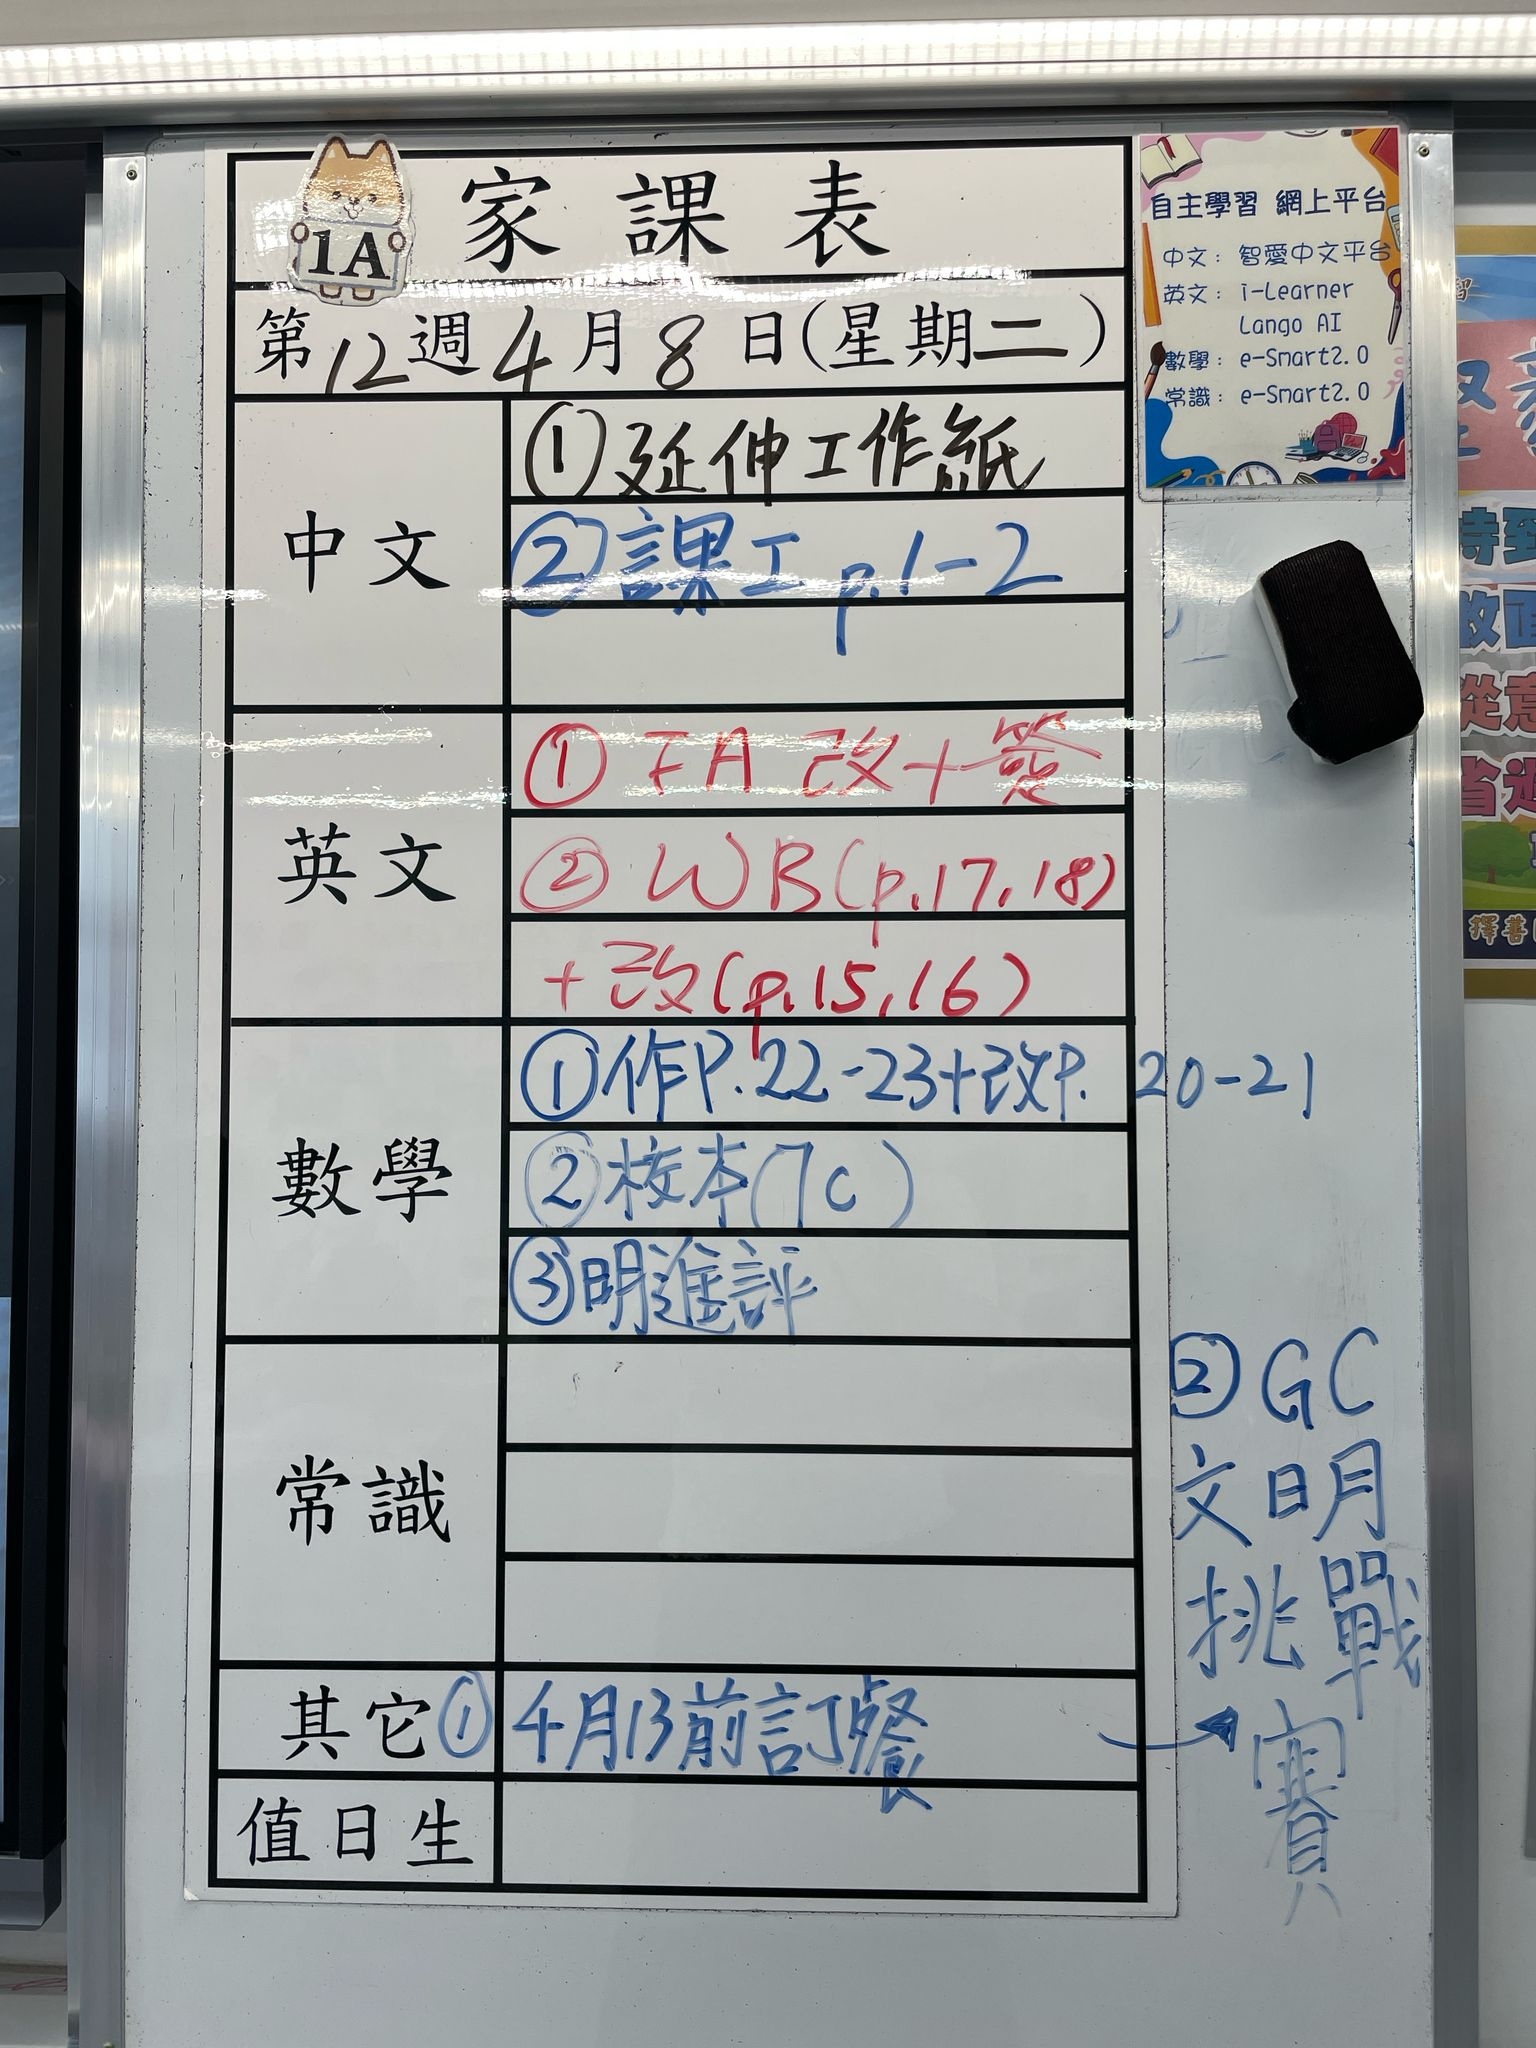 1A
家課表
第12週4月8日(星期二)
中文
①延伸工作紙
②課工p.1-2
英文
①FA改+簽
②WB(p.17,18)
+改(p.15,16)
數學
①作P.22-23+改P.20-21
②校本(7C)
③明進評
常識
其它
①4月13前訂餐
②GC
文明
挑戰
賽
值日生
自主學習 網上平台
中文：智愛中文平台
英文：i-Learner
Lango AI
數學：e-Smart2.0
常識：e-Smart2.0